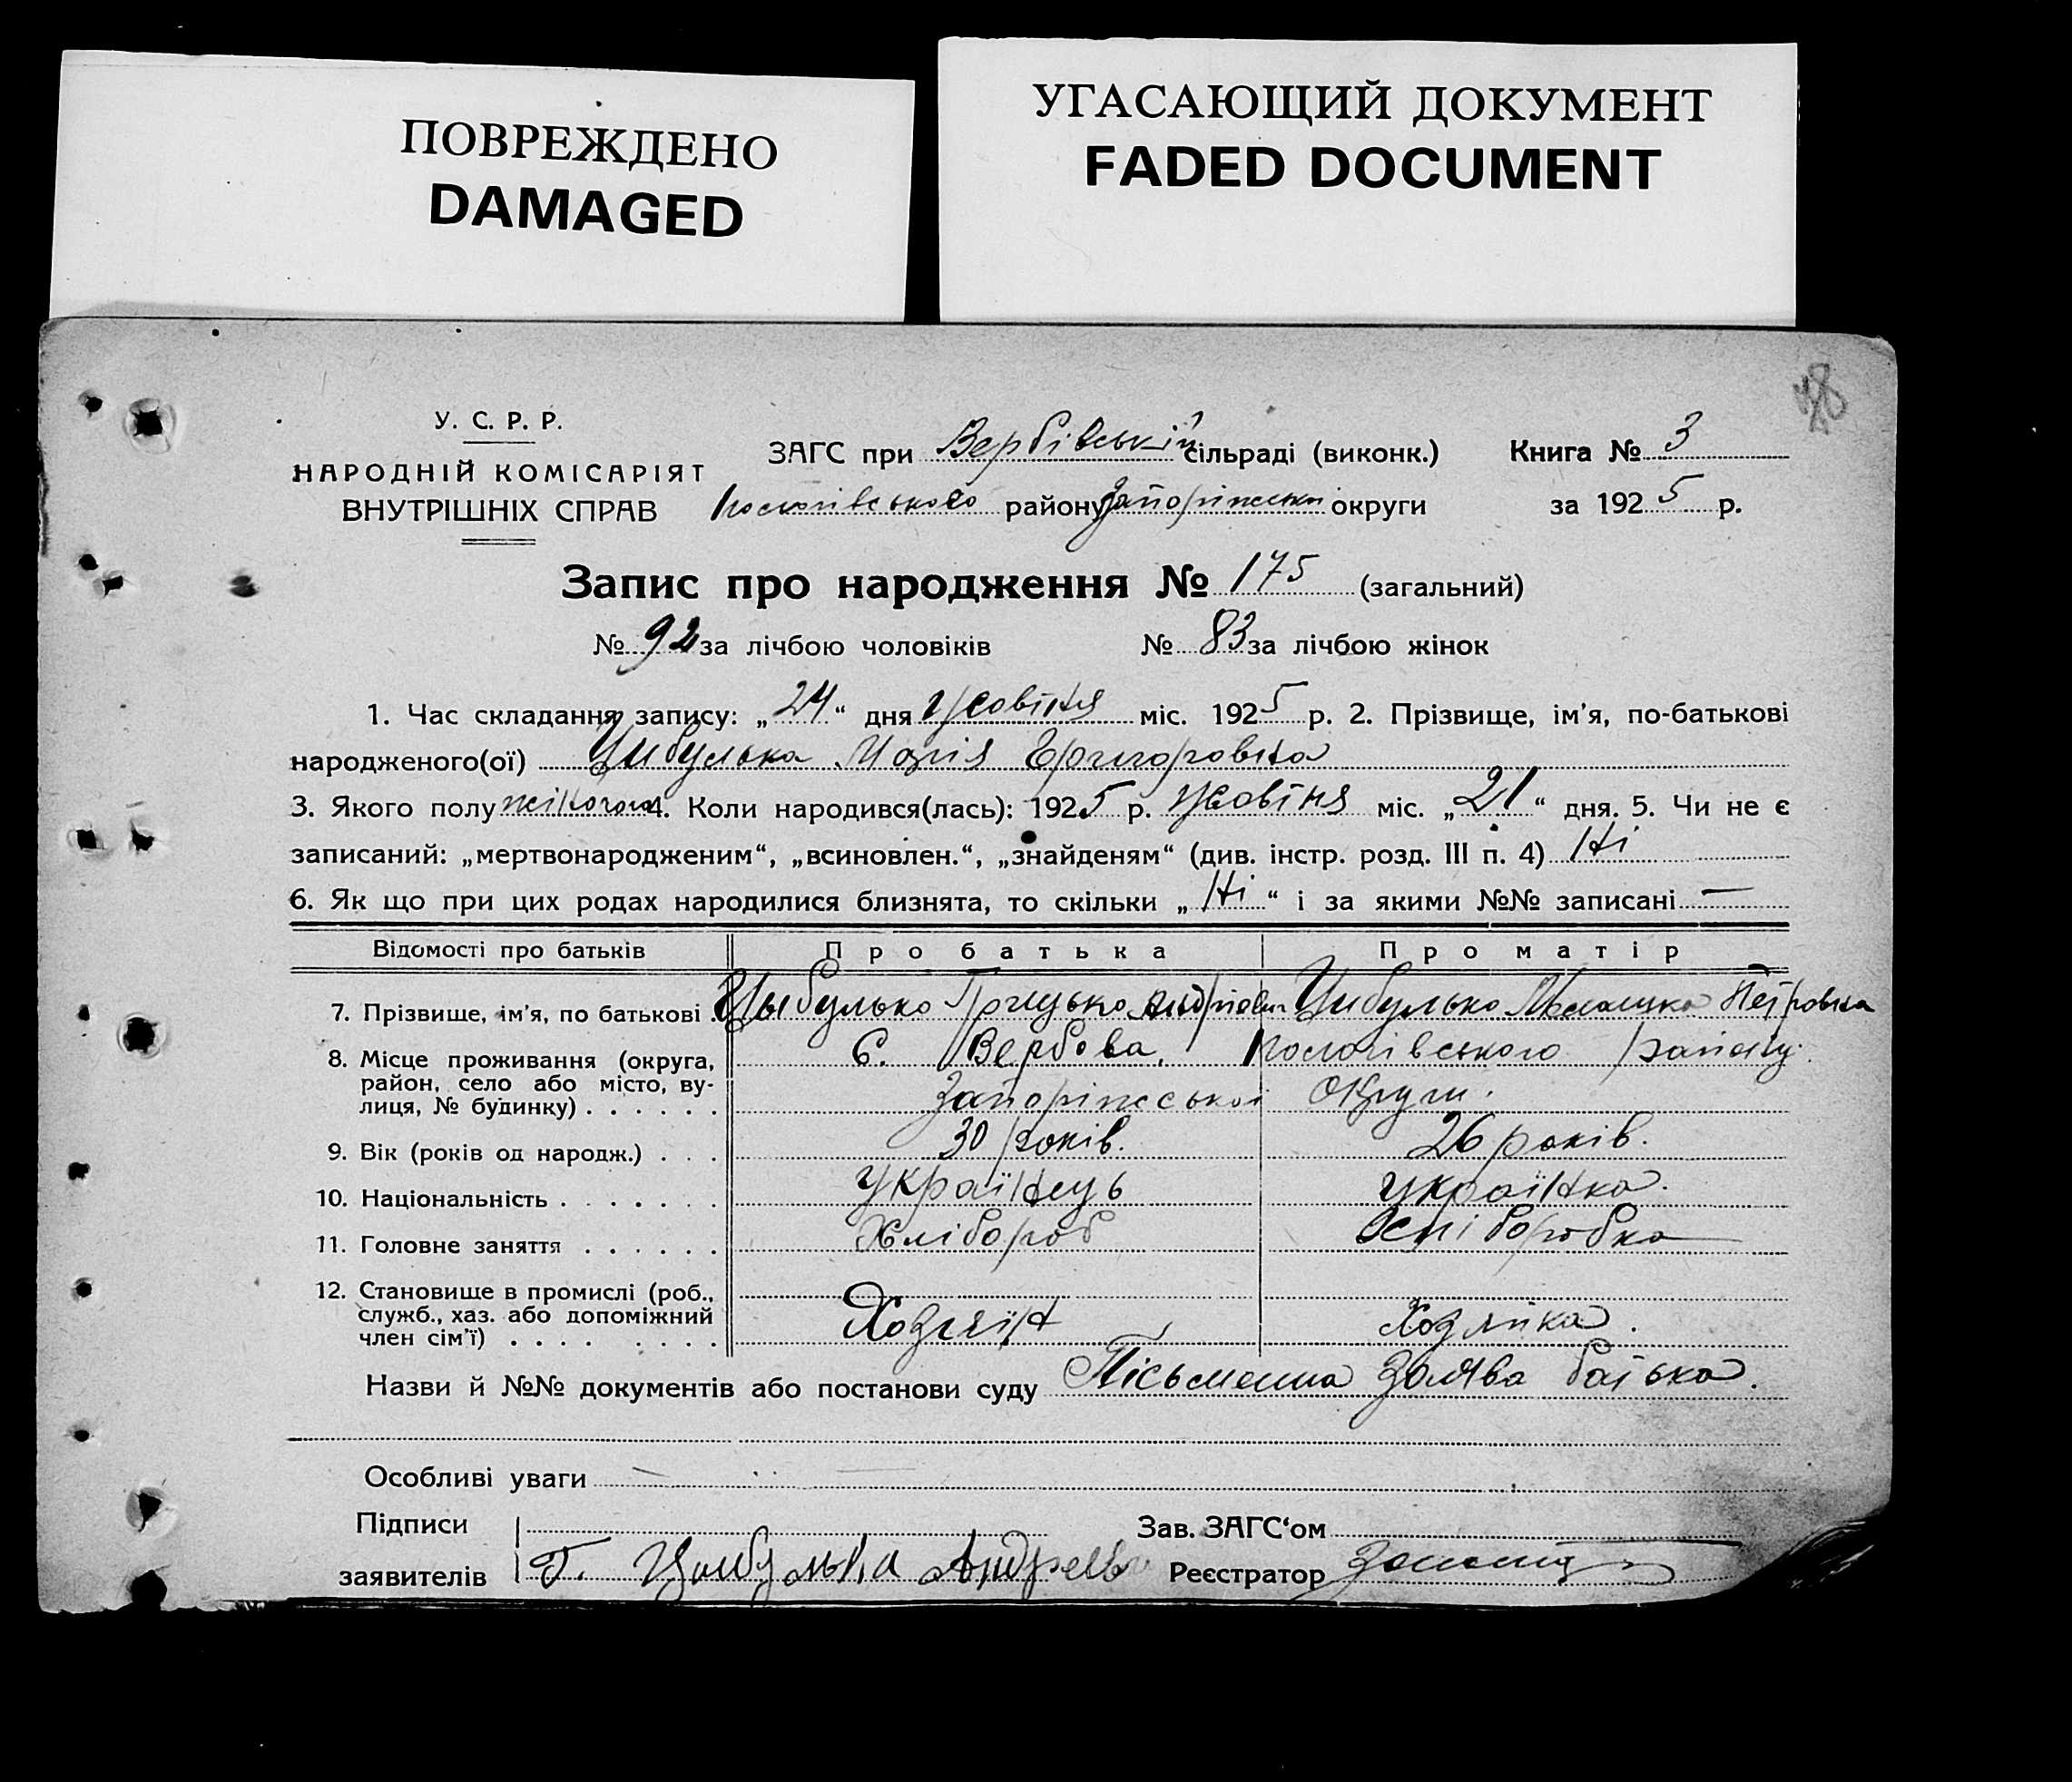 ПОВРЕЖДЕНО
DAMAGED
УГАСАЮЩИЙ ДОКУМЕНТ
FADED DOCUMENT
У. С. Р. Р.
НАРОДНІЙ КОМІСАРІЯТ
ВНУТРІШНІХ СПРАВ
ЗАГС при Вербівській сільраді (виконк.)
Пологівського району Запоріжськ округи
Книга № 3
за 1925 р.
Запис про народження № 175 (загальний)
№ 92 за лічбою чоловіків № 83 за лічбою жінок
1. Час складання запису: „24“ дня Жовтня міс. 1925 р. 2. Прізвище, ім'я, по-батькові
народженого(ої) Цибулька Марія Григоровна
3. Якого полу жіночого 4. Коли народився(лась): 1925 р. Жовтня міс. „21“ дня. 5. Чи не є
записаний: „мертвонародженим“, „всиновлен.“, „знайденям“ (див. інстр. розд. III п. 4) Ні
6. Як що при цих родах народилися близнята, то скільки „Ні“ і за якими №№ записані —
Відомості про батьків Про батька Про матір
7. Прізвище, ім'я, по батькові Цыбулько Грицько Андріевич Цибулько Петровна
8. Місце проживання (округа, район, село або місто, вулиця, № будинку) . . . . . . С. Вербова, Пологівського району.
Запоріжськоі Округи.
9. Вік (років од народж.) . . . 30 років. 26 років.
10. Національність . . . . . . . Українець українка.
11. Головне заняття . . . . . . Хлібороб Хліборобка
12. Становище в промислі (роб.,
служб., хаз. або допоміжний
член сім'ї) . . . . . . . . Хозяїн Хозяйка.
Назви й №№ документів або постанови суду Пісьменна заява батька.
Особливі уваги —
Підписи
заявителів Г. Цыбулька Андреев
Зав. ЗАГС'ом
Реєстратор